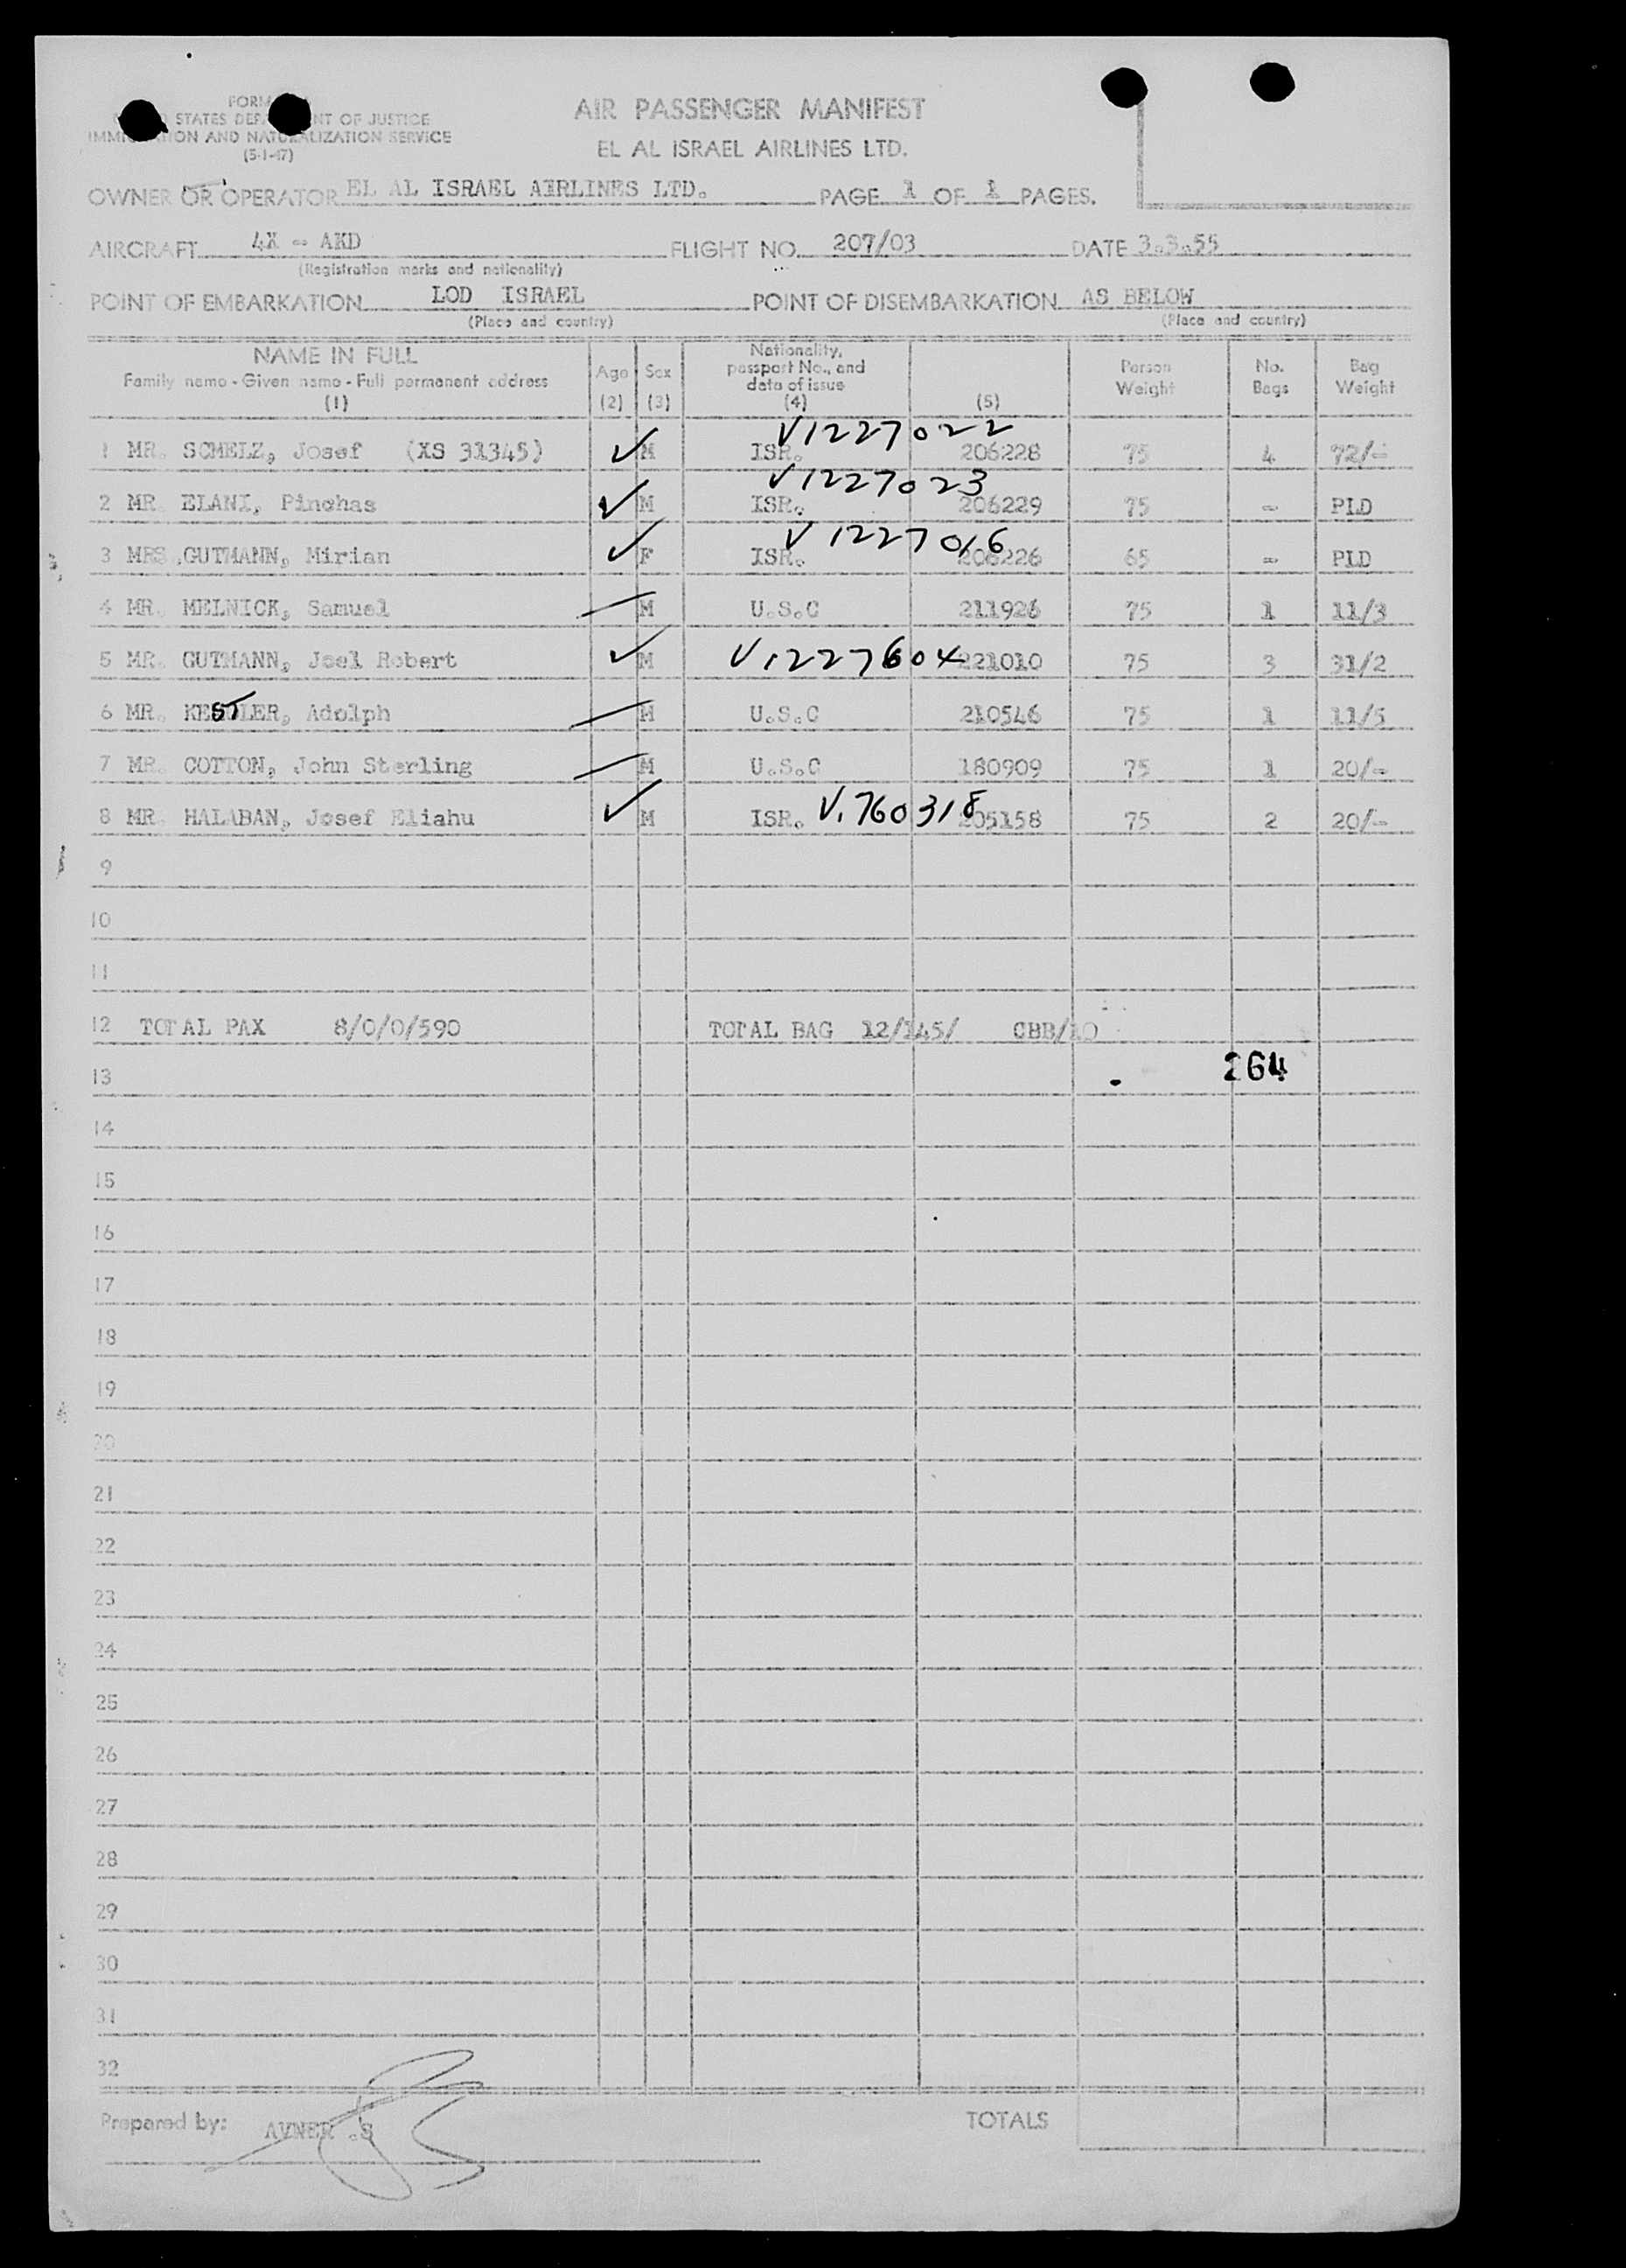 FORM
STATES DEPA NT OF JUSTICE
IMMIG TION AND NATURALIZATION SERVICE
(5-1-47)
AIR PASSENGER MANIFEST
EL AL ISRAEL AIRLINES LTD.
OWNER OR OPERATOR EL AL ISRAEL AIRLINES LTD. PAGE 1 OF 1 PAGES.
AIRCRAFT 4X - AKD FLIGHT NO. 207/03 DATE 3.3.55
(Registration marks and nationality)
POINT OF EMBARKATION LOD ISRAEL POINT OF DISEMBARKATION AS BELOW
(Place and country) (Place and country)
NAME IN FULL
Family name - Given name - Full permanent address
(1)
Age
(2)
Sex
(3)
Nationality,
passport No., and
date of issue
(4)
(5)
Person
Weight
No.
Bags
Bag
Weight
V1227022
1 MR. SCMELZ, Josef (XS 31345) ✓ M ISR. 206228 75 4 72/-
V1227023
2 MR. ELANI, Pinchas ✓ M ISR. 206229 75 - PLD
V1227016
3 MRS. GUTMANN, Mirian ✓ F ISR. 206226 65 - PLD
4 MR. MELNICK, Samuel M U.S.C 211926 75 1 11/3
5 MR. GUTMANN, Joel Robert ✓ M V1227604 221010 75 3 31/2
6 MR. KESTLER, Adolph M U.S.C 210546 75 1 11/5
7 MR. COTTON, John Sterling M U.S.C 180909 75 1 20/-
8 MR. HALABAN, Josef Eliahu ✓ M ISR. V.760318 205158 75 2 20/-
9
10
11
12 TOTAL PAX 8/0/0/590 TOTAL BAG 12/145/ CBB/10
264
13
14
15
16
17
18
19
20
21
22
23
24
25
26
27
28
29
30
31
32
Prepared by: AVNER .S TOTALS